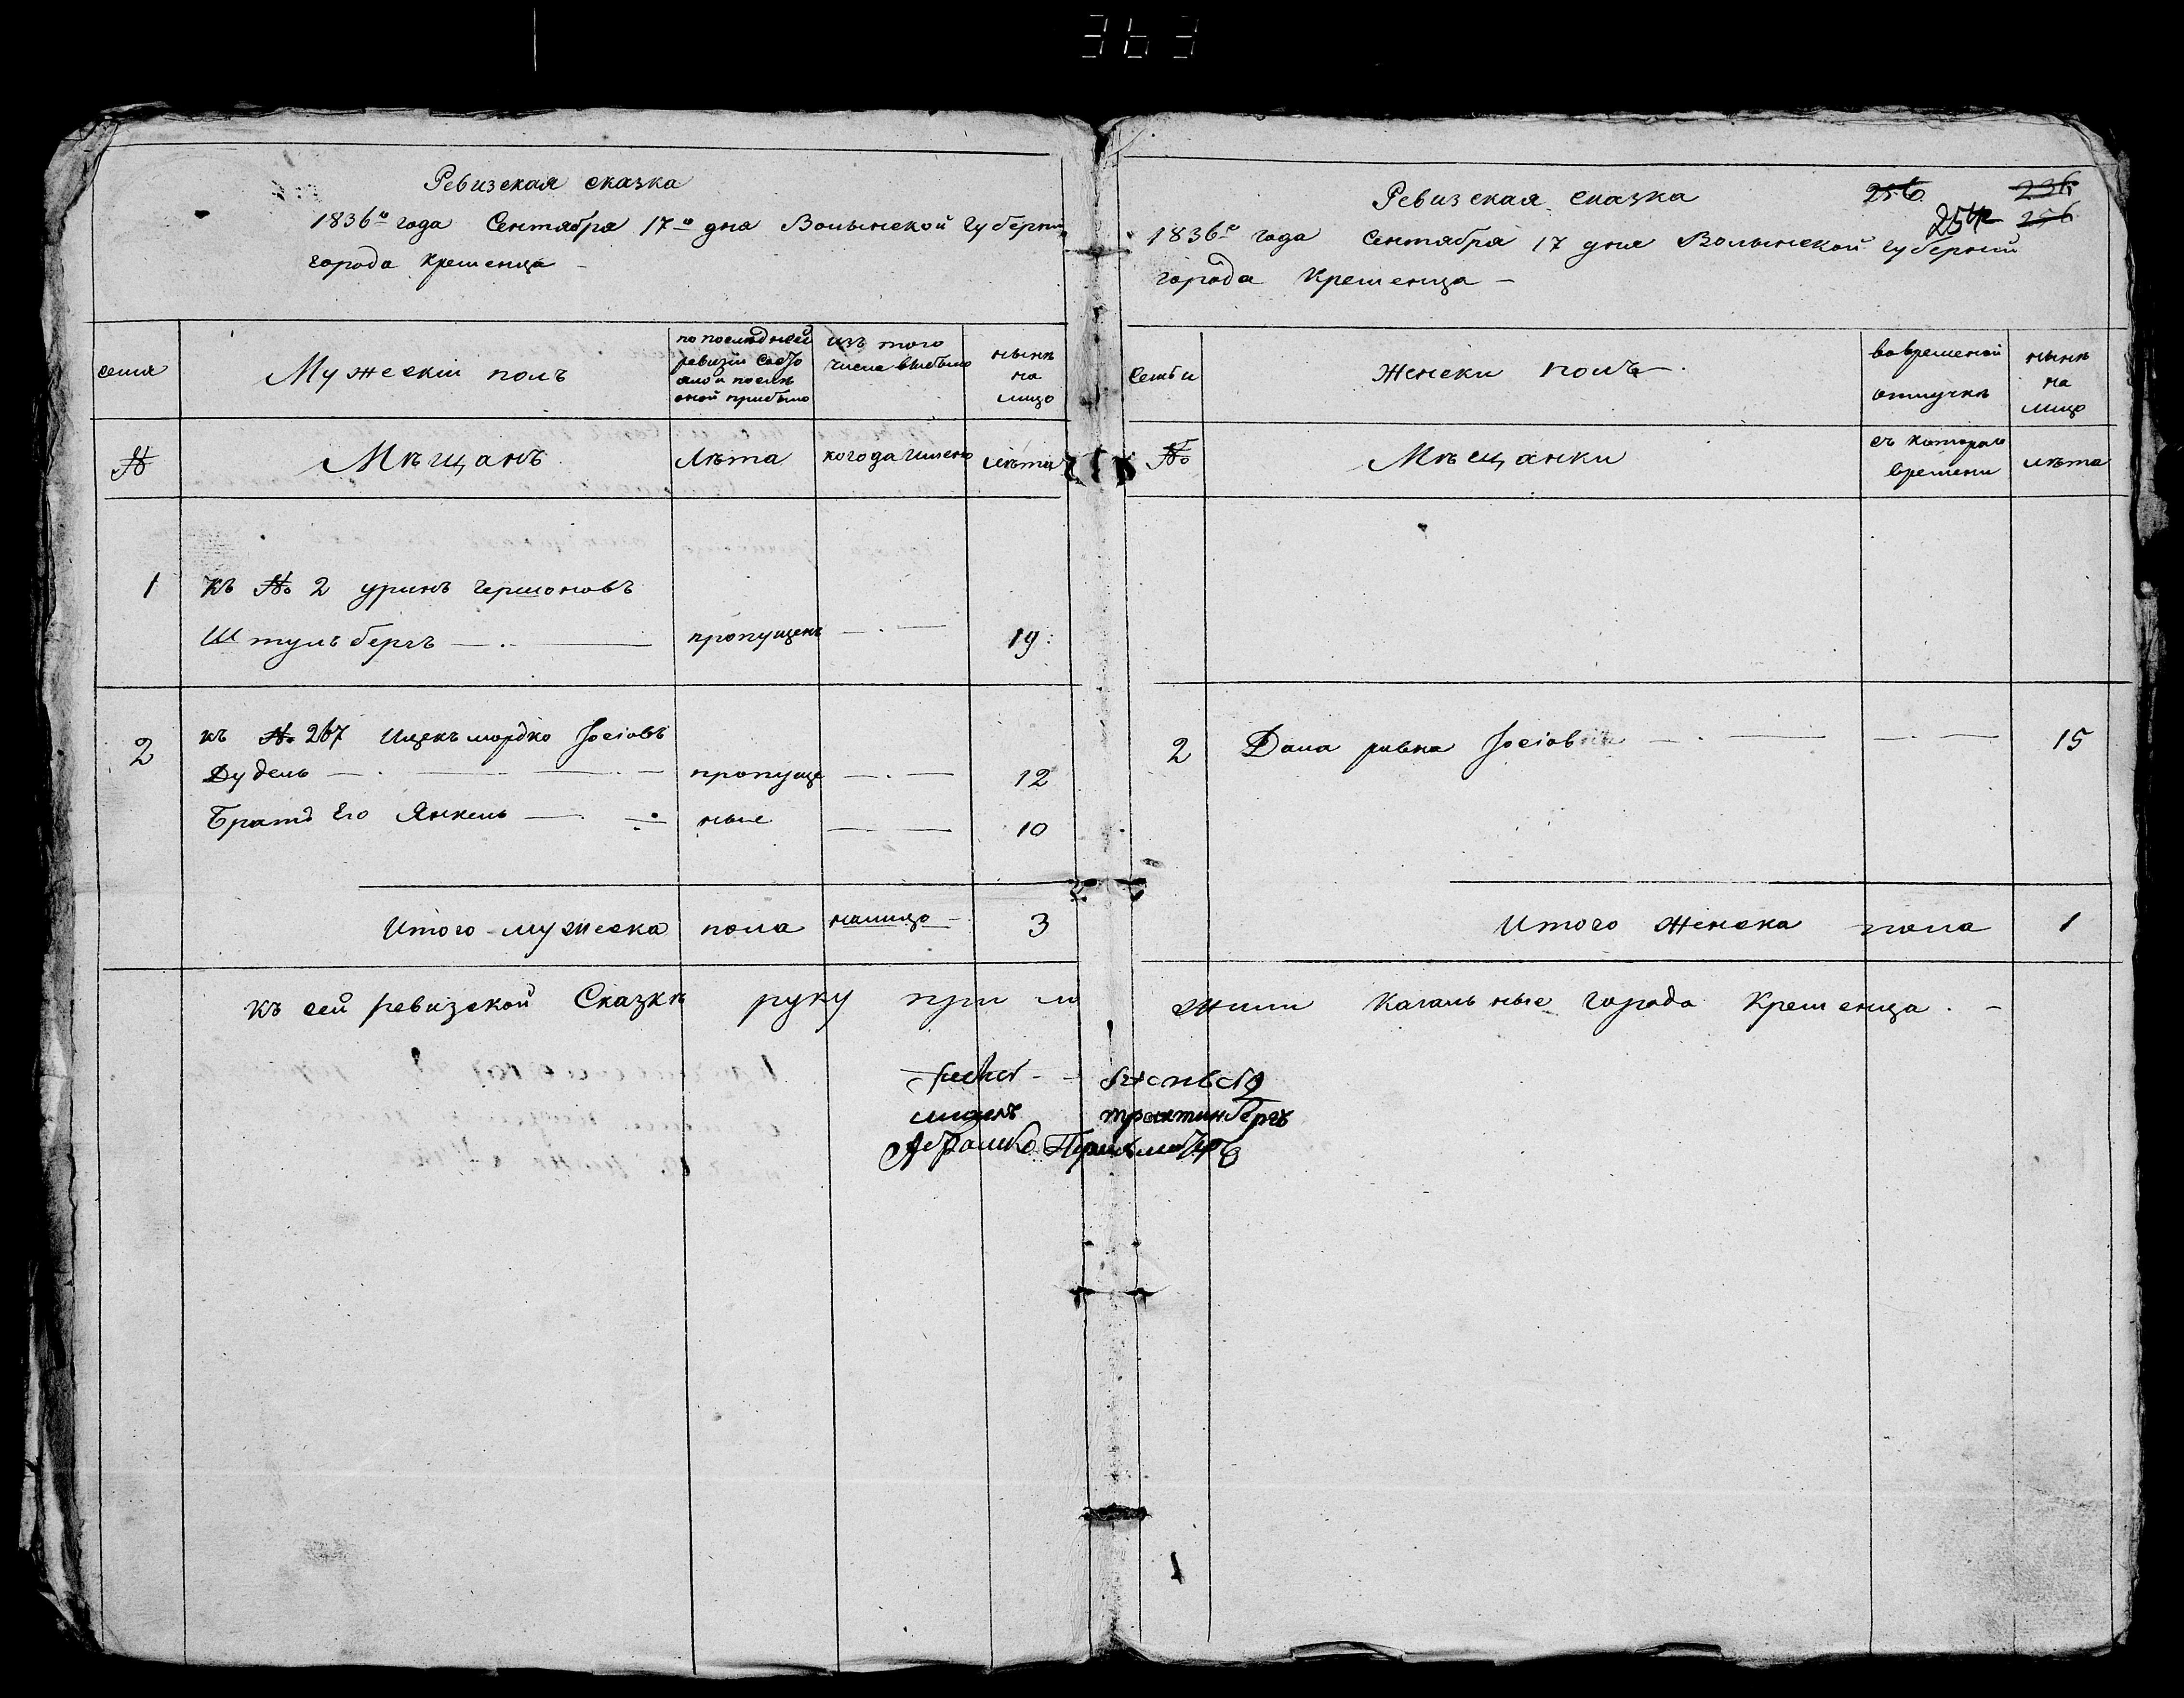 363
Ревизская сказка
1836го года Сентября 17го дня Волынской Губерни
города Кременца
семя
Мужескій полъ
по последней ревизіи состо яло и после оной прибыло
изъ того числа выбыло
нынѣ на лицо
№
Мѣщанъ
Лѣта
когода имено
лѣта
1 Къ № 2 Уринъ Гершоновъ
Штульбергъ пропущенъ 19
2 къ № 267 Ицекъ мордко Іосіовъ
Дудель пропуще 12
Братъ Его Янкель ные 10
Итого мужеска пола налицо 3
Ревизская сказка
256
236
256
1836го года Сентября 17 дня Волынской губерній
города Кременца
Семьи
Женски полъ
вовременой отлучкѣ
нынѣ на лицо
№
Мѣщанки
съ котораго времени
лѣта
2 Дана ривка 15
Итого Женска пола 1
Къ сей ревизской Сказкѣ руку приложили Кагальные города Кременца
трактинбергъ
Абрамко